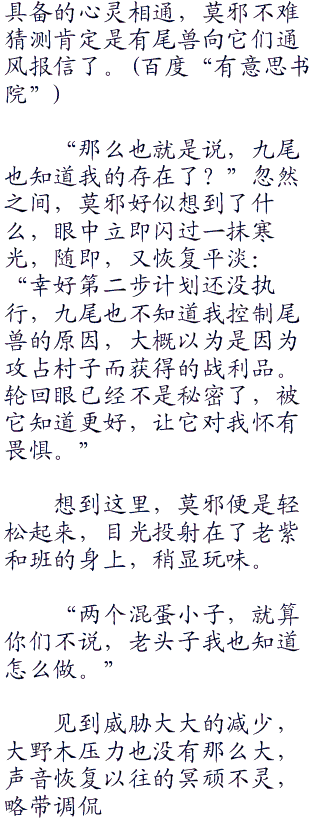 具备的心灵相通，莫邪不难
猜测肯定是有尾兽向它们通
风报信了。(百度“有意思书
院”)
“那么也就是说，九尾
也知道我的存在了？”忽然
之间，莫邪好似想到了什
么，眼中立即闪过一抹寒
光，随即，又恢复平淡：
“幸好第二步计划还没执
行，九尾也不知道我控制尾
兽的原因，大概以为是因为
攻占村子而获得的战利品。
轮回眼已经不是秘密了，被
它知道更好，让它对我怀有
畏惧。”
想到这里，莫邪便是轻
松起来，目光投射在了老紫
和班的身上，稍显玩味。
“两个混蛋小子，就算
你们不说，老头子我也知道
怎么做。”
见到威胁大大的减少，
大野木压力也没有那么大，
声音恢复以往的冥顽不灵，
略带调侃